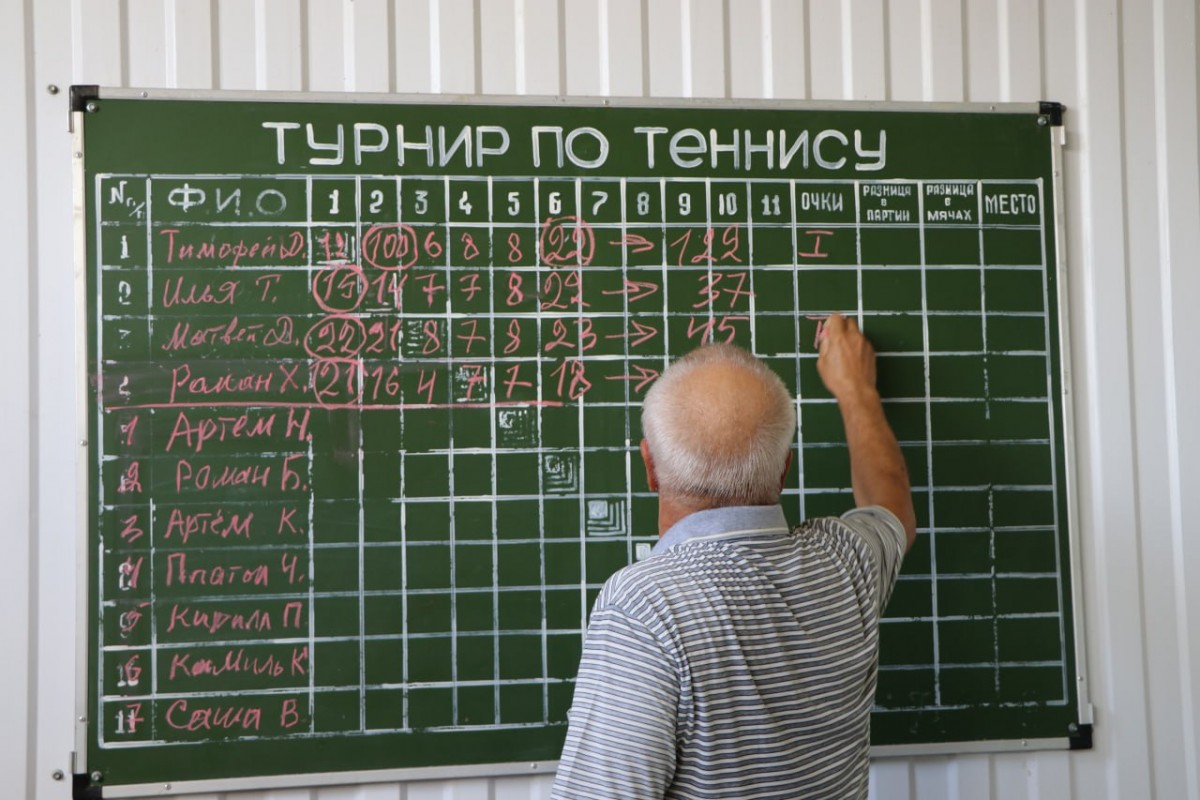 ТУРНИР ПО ТЕННИСУ
№ п/п Ф.И.О 1 2 3 4 5 6 7 8 9 10 11 ОЧКИ РАЗНИЦА В ПАРТИИ РАЗНИЦА В МЯЧАХ МЕСТО
1 Тимофей Д. 100 6 8 8 22 → 122 I
2 Илья Т. 15 14 7 7 8 22 → 37
Матвей Д. 22 21 8 7 8 23 → 45
Раман Х. 21 16 4 7 7 18 →
1 Артём Н.
2 Роман Б.
3 Артём К.
4 Платон Ч.
5 Кирилл П
6 Камиль К
7 Саша В